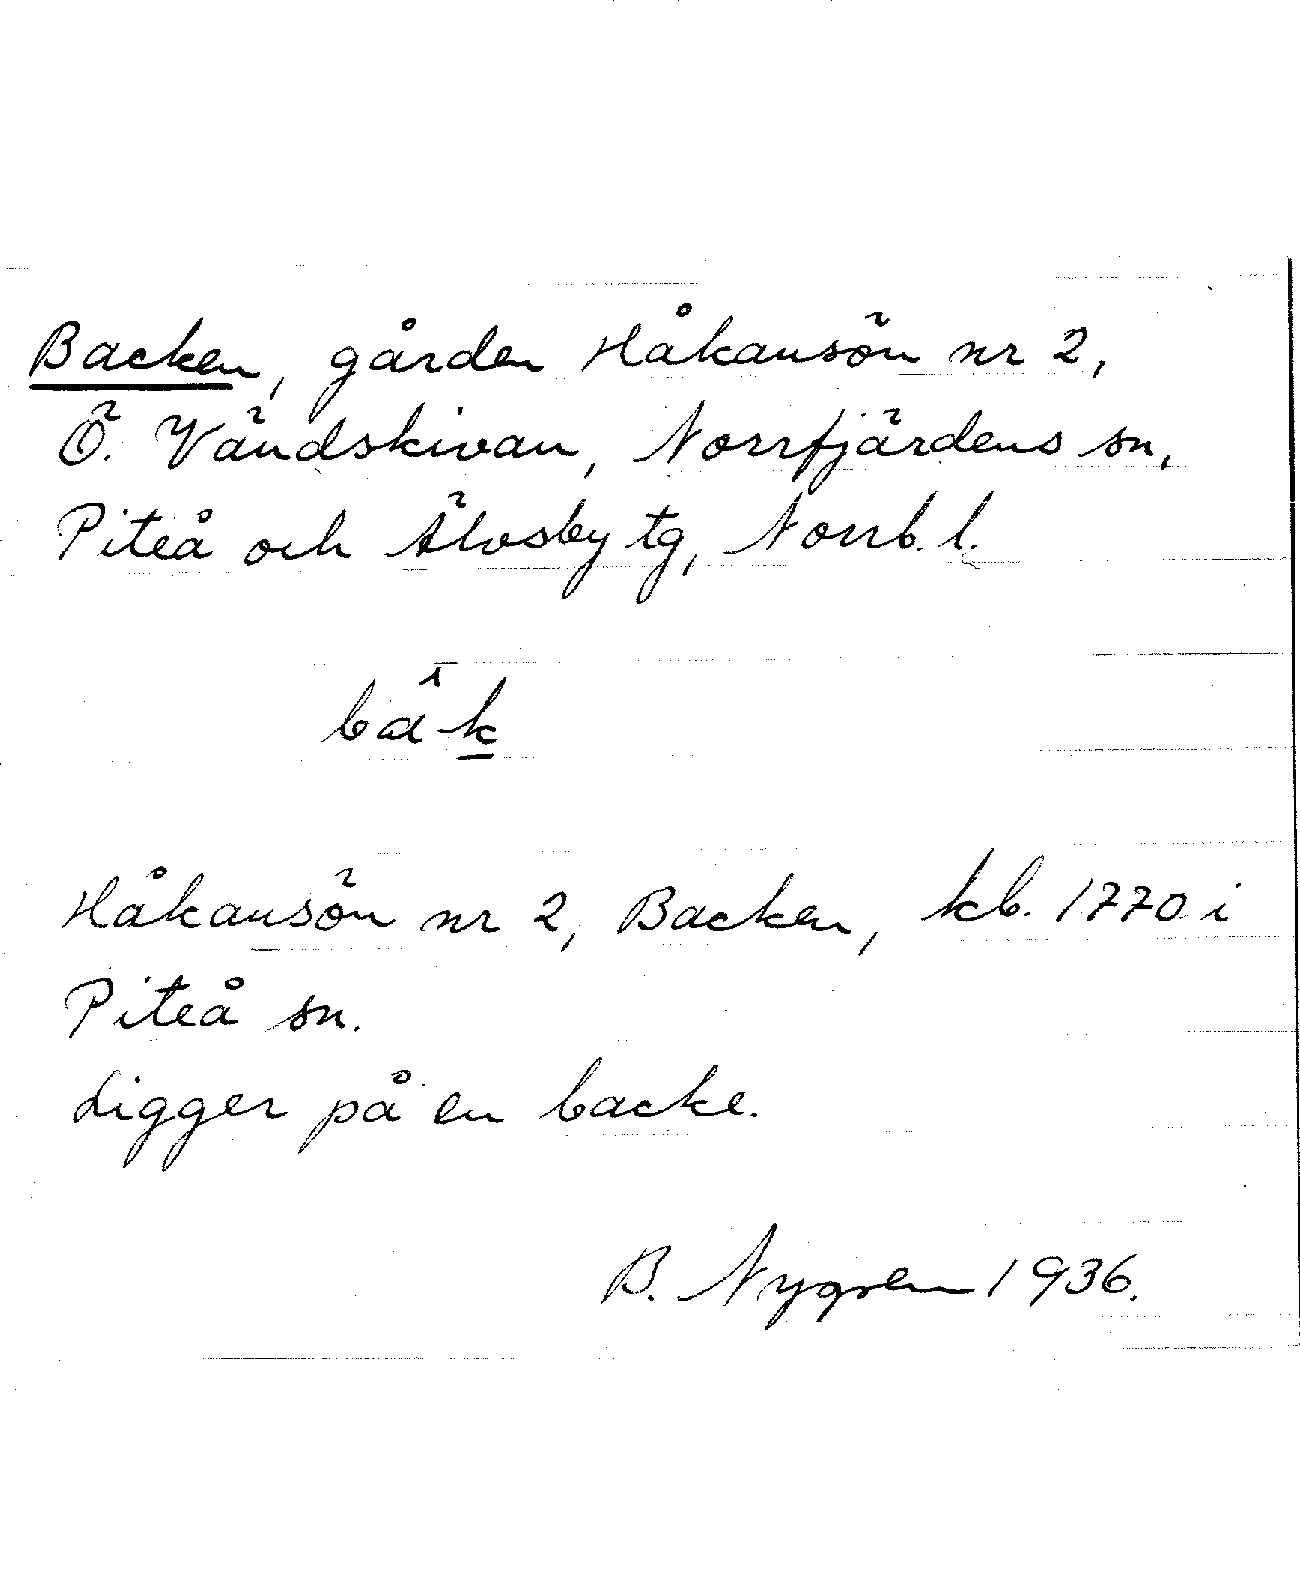 Backen, gården Håkansön nr 2,
Ö. Vändskivan, Norrfjärdens sn,
Piteå och Älvsby tg, Norrb. l.
Håkansön nr 2, Backen, kb. 1770 i
Piteå sn.
Ligger på en backe.
B. Nygren 1936.